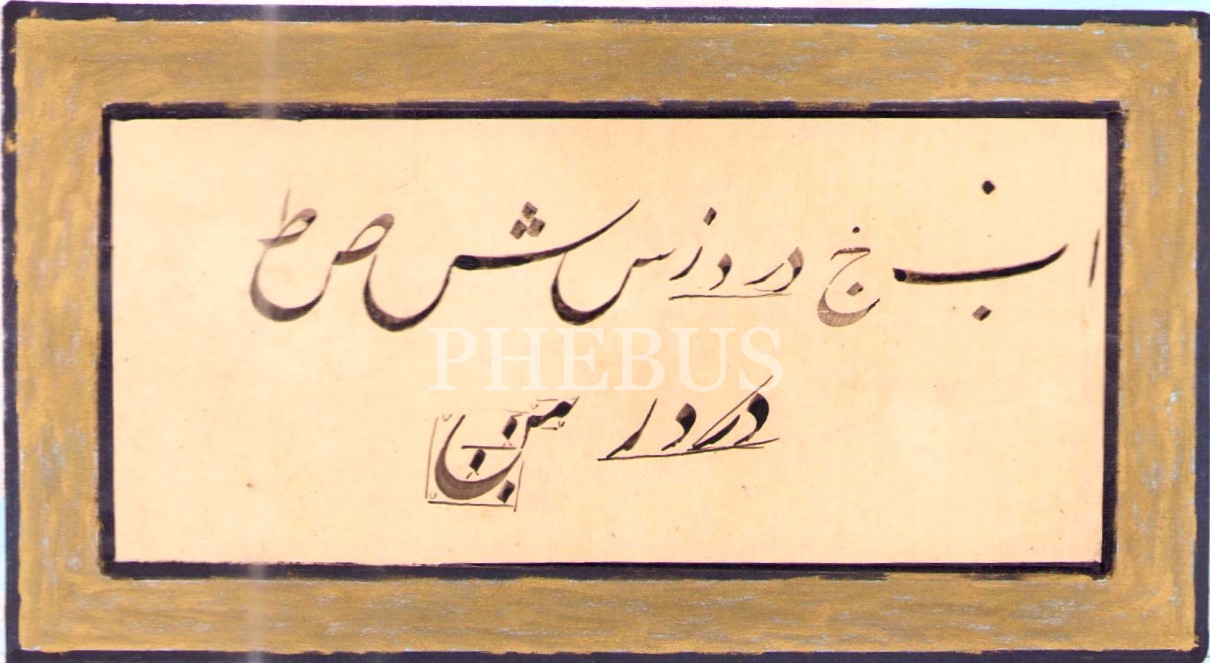 ا ب خ د ر د ز س ش ص ط
PHEBUS
د ر د ر س